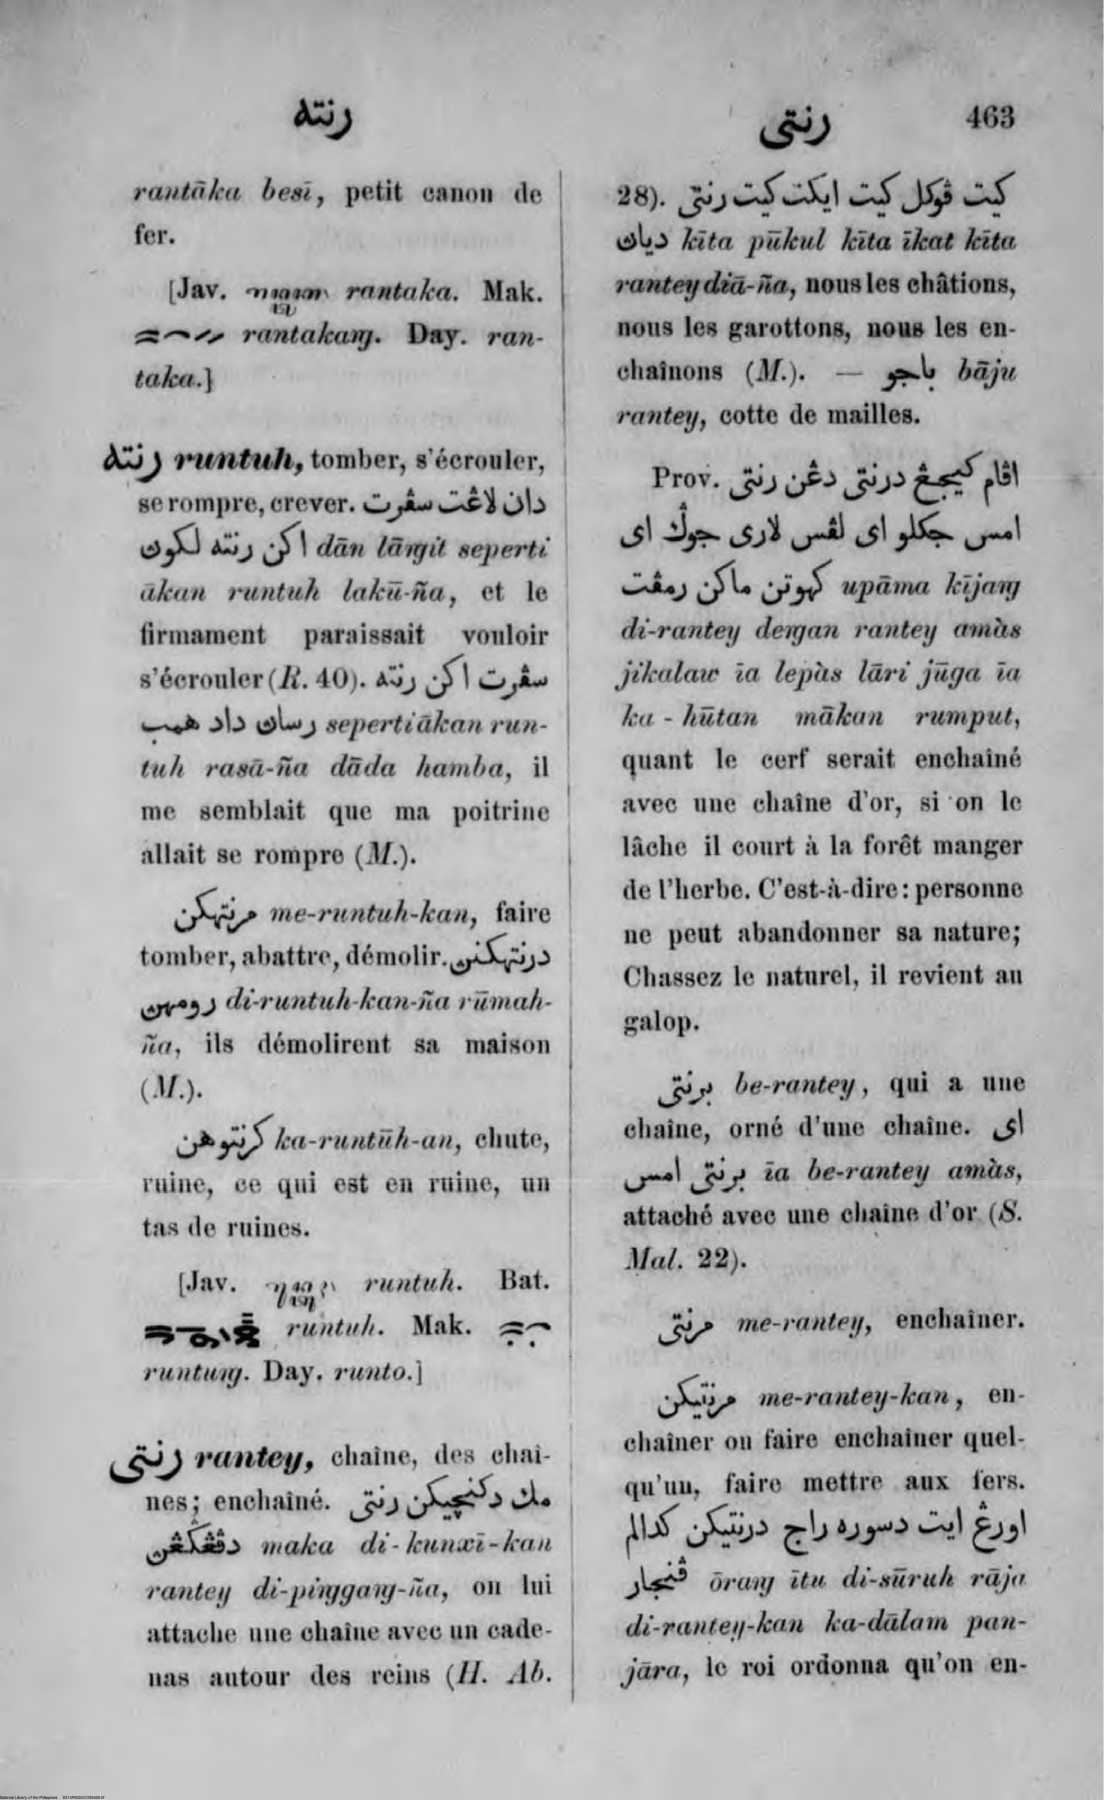 رنته
رنتى 463
rantāka besī, petit canon de
fer.
[Jav. rantaka. Mak.
rantakaṃg. Day. ran-
taka.]
رنته runtuh, tomber, s'écrouler,
se rompre, crever. دان لاڠت سڤرت
اكن رنته لكوڽ dān lāṃgit seperti
ākan runtuh lakū-ña, et le
firmament paraissait vouloir
s'écrouler (R. 40). سڤرت اكن رنته
رساڽ داد همب seperti ākan run-
tuh rasā-ña dāda hamba, il
me semblait que ma poitrine
allait se rompre (M.).
مرنتهكن me-runtuh-kan, faire
tomber, abattre, démolir. درنتهكنڽ
رومهڽ di-runtuh-kan-ña rūmah-
ña, ils démolirent sa maison
(M.).
كرنتوهن ka-runtūh-an, chute,
ruine, ce qui est en ruine, un
tas de ruines.
[Jav. runtuh. Bat.
runtuh. Mak.
runtuṃg. Day. runto.]
رنتى rantey, chaîne, des chaî-
nes; enchaîné. مك دكنچيكن رنتى
دڤڠݢڠڽ maka di-kunxī-kan
rantey di-piṃggaṃg-ña, on lui
attache une chaîne avec un cade-
nas autour des reins (H. Ab.
28). كيت ڤوكل كيت ايكت كيت رنتى
دياڽ kīta pūkul kīta īkat kīta
rantey diā-ña, nous les châtions,
nous les garottons, nous les en-
chaînons (M.). — باجو bāju
rantey, cotte de mailles.
Prov. اڤام كيجڠ درنتى دڠن رنتى
امس جكلو اى لڤس لارى جوݢ اى
كهوتن ماكن رمڤت upāma kījaṃg
di-rantey deṃgan rantey amàs
jikalaw īa lepàs lāri jūga īa
ka-hūtan mākan rumput,
quant le cerf serait enchaîné
avec une chaîne d'or, si on le
lâche il court à la forêt manger
de l'herbe. C'est-à-dire: personne
ne peut abandonner sa nature;
Chassez le naturel, il revient au
galop.
برنتى be-rantey, qui a une
chaîne, orné d'une chaîne. اى
برنتى امس īa be-rantey amàs,
attaché avec une chaîne d'or (S.
Mal. 22).
مرنتى me-rantey, enchaîner.
مرنتيكن me-rantey-kan, en-
chaîner ou faire enchaîner quel-
qu'un, faire mettre aux fers.
اورڠ ايت دسوره راج درنتيكن كدالم
ڤنجار ōraṃg ītu di-sūruh rāja
di-rantey-kan ka-dālam pan-
jāra, le roi ordonna qu'on en-